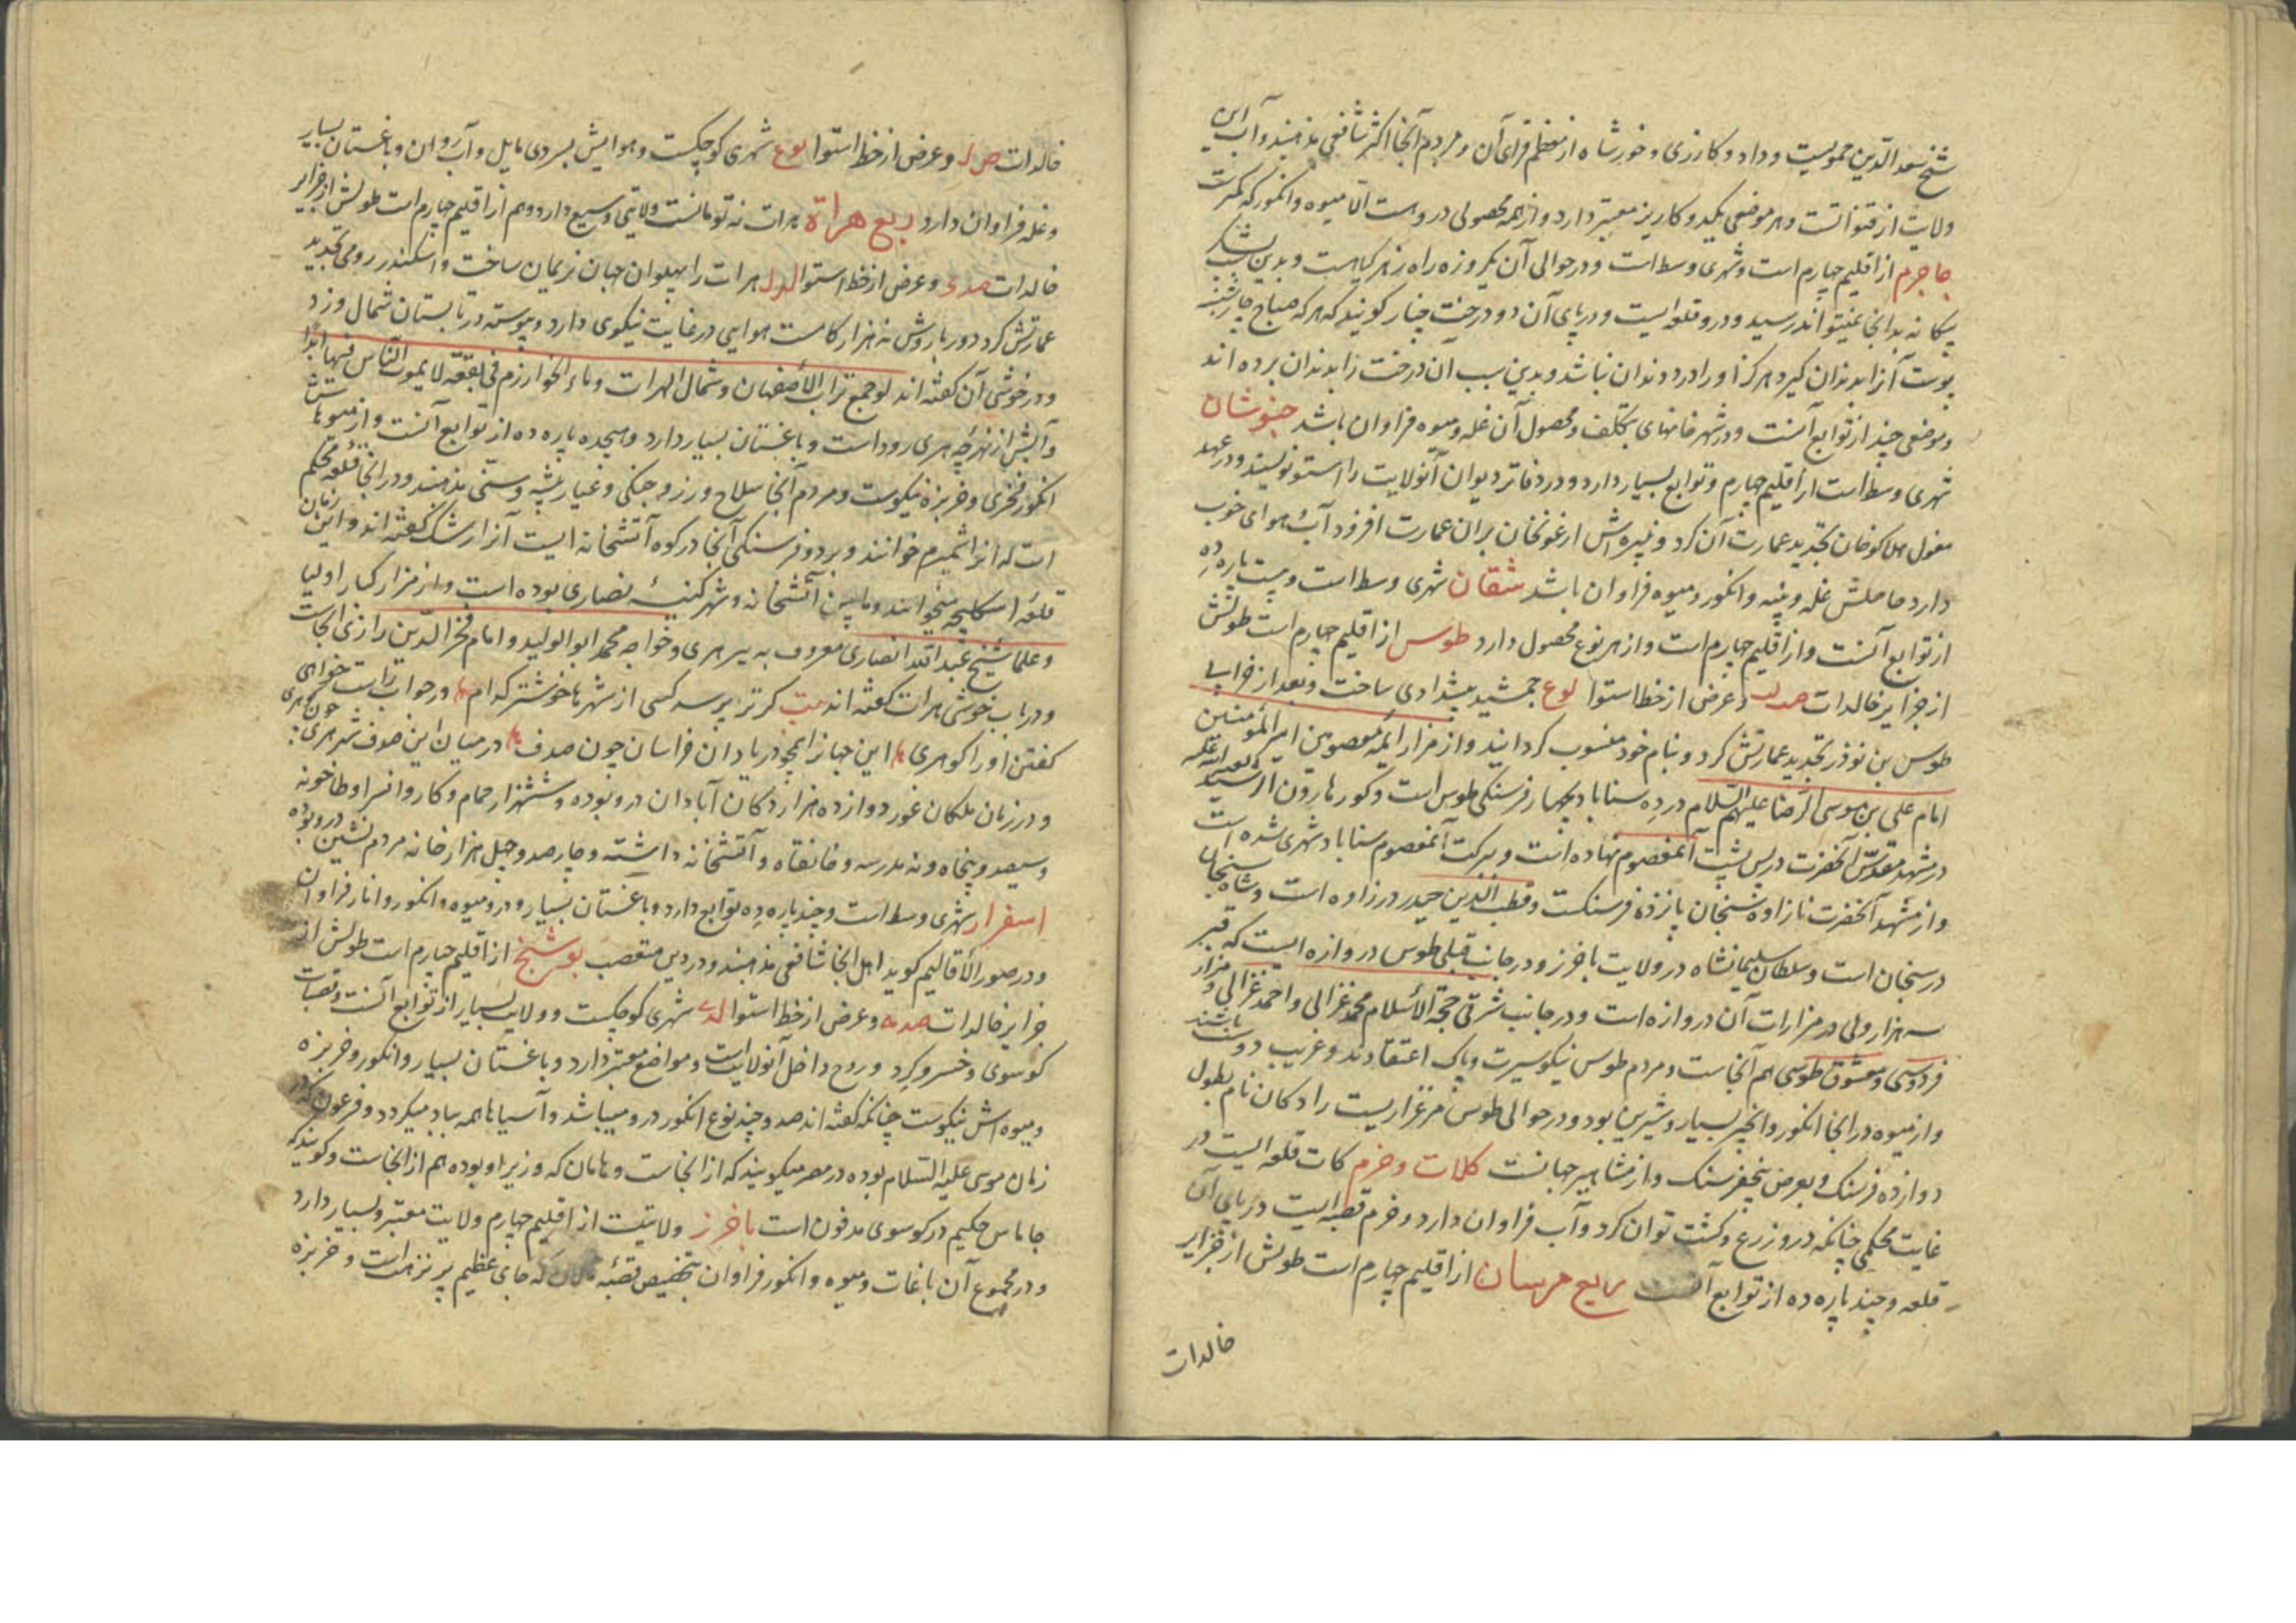 شیخ سعد الدین حمویست و داد و کارزی و خورشاه از معظم قرای آن و مردم آنجا اکثر شافعی مذهبند و آب این
ولایت از قنواتست و هر موضعی یکدو کاریز معتبر دارد و از همه محصولی دروهست الا میوه و انکور که کمترست
جاجرم از اقلیم چهارم است و شهری وسط است و در حوالی آن یکروزه راه زهر کیاهست و بدین سبب لشکر
بیکانه بدانجا نمیتواند رسید و درو قلعه ایست و در پای آن دو درخت چنار کویند که هر که صباح چارشنبه
پوست آنرا بدندان کیرد هرکز او را درد دندان نباشد و بدین سبب آن درخت را بدندان برده اند
و موضعی چند از توابع آنست و در شهر خانهای بتکلف و محصول آن غله و میوه فراوان باشد خبوشان
شهری وسط است از اقلیم چهارم و توابع بسیار دارد و در دفاتر دیوان آنولایت را استو نویسند و در عهد
مغول هلاکو خان تجدید عمارت آن کرد و نبیره اش ارغونخان بران عمارت افزود آب و هوای خوب
دارد حاصلش غله و پنبه و انکور و میوه فراوان باشد شقان شهری وسط است و بیست پاره دِه
از توابع آنست و از اقلیم چهارم است و از هر نوع محصول دارد طوس از اقلیم چهارم است طولش
از جزایر خالدات صدلب و عرض از خط استوا لوع جمشید پیشدادی ساخت و بعد از خرابی
طوس بن نوذر تجدید عمارتش کرد و بنام خود منسوب کردانید و از مزار ایمه معصومین امیر المؤمنین
امام علی بن موسی الرضا علیهم السلام در دِه سناباد بچهار فرسنکی طوس است و کور هارون الرشید لعنه الله علیه
در مشهد مقدس آنحضرت در پس پشت آنمعصوم نهاده است و ببرکت آنمعصوم سناباد شهری شده است
و از مشهد آنحضرت تا زاوه سنجان پانزده فرسنکست و قطب الدین حیدر در زاوه است و شاه سنجان
در سنجان است و سلطان سلیمانشاه در ولایت باخرز و در جانب قبلی طوس دروازه ایست که قبر
سه هزار ولی در مزارات آن دروازه است و در جانب شرقی حجة الاسلام محمد غزالی و احمد غزالی و مزار
فردوسی و معشوق طوسی هم آنجاست و مردم طوس نیکو سیرت و پاک اعتقادند و غریب دوست باشند
و از میوه در انجا انکور و انجیر بسیار و شیرین بود و در حوالی طوس مرغزاریست رادکان نام بطول
دوازده فرسنک و بعرض پنجفرسنک و از مشاهیر جهانست کلات و خرم کات قلعه ایست در
غایت محکمی چنانکه درو زرع و کشت توان کرد و آب فراوان دارد و خرم قصبه ایست در پای آن
قلعه و چند پاره ده از توابع آنست ربع خرسان از اقلیم چهارم است طولش از جزایر
خالدات
خالدات ص لد و عرض از خط استوا لوع شهری کوچکست و هوایش بسردی مایل و آب روان و باغستان بسیار
و غله فراوان دارد ربع هراة هرات نه تومانست ولایتی وسیع دارد و هم از اقلیم چهارم است طولش از جزایر
خالدات صدی و عرض از خط استوا لدل هرات را پهلوان جهان نریمان ساخت و اسکندر رومی تجدید
عمارتش کرد دور باروش نه هزار کامست هوایی در غایت نیکوی دارد و پیوسته در تابستان شمال وزد
و در خوشی آن کفته اند لو جمع تراب الاصفهان و شمال الهرات و ماء الخوارزم فی بقعة لا یموت الناس فیها ابدا
و آبش از نهرچه هری رود است و باغستان بسیار دارد و هیجده پاره ده از توابع آنست و از میوهاش
انکور فخری و خربزه نیکوست و مردم آنجا سلاح ورز و جنکی و عیار پیشه و سنی مذهبند و در انجا قلعه محکم
است که انرا شمیرم خوانند و بر دو فرسنکی آنجا در کوه آتشخانه ایست آنرا ارشک کفته اند و این زمان
قلعه اسکلیجه میخوانند و مابین آتشخانه و شهر کنیسه نصاری بوده است و از مزار کبار اولیا
و علما شیخ عبد الله انصاری معروف به پیر هری و خواجه محمد ابو الولید و امام فخر الدین رازی انجاست
و در باب خوشی هرات کفته اند بیت کر ترا پرسه کسی از شهرها خوشتر کدام در جواب راست خواهی
کفتن او را کو هری این جهانرا همچو دریا دان خراسان چون صدف در میان این صدف شهر هری چون کوهری
و در زمان ملکان غور دوازده هزار دکان آبادان درو بوده و ششهزار حمام و کاروانسرا و طاحونه
و سیصد و پنجاه و نه مدرسه و خانقاه و آتشخانه داشته و چارصد و چهل هزار خانه مردم نشین درو بوده
اسفرار شهری وسط است و چند پاره ده توابع دارد و باغستان بسیار و درو میوه و انکور و انار فراوان
و در صور الاقالیم کوید اهل انجا شافعی مذهبند و در دین متعصب بوشنج از اقلیم چهارم است طولش از
جزایر خالدات صدمه و عرض از خط استوا لدے شهری کوچکست و ولایت بسیار از توابع آنست و قصبات
کوسوی و خسروکرد و روح داخل آنولایت است و مواضع معتبر دارد و باغستان بسیار و انکور و خربزه
و میوه اش نیکوست چنانکه کفته اند صد و چند نوع انکور درو میباشد و آسیاها همه بباد میکردد و فرعون که در
زمان موسی علیه السلام بوده در مصر میکویند که از انجاست و هامان که وزیر او بوده هم از انجاست و کویند که
جاماس حکیم در کوسوی مدفون است باخرز ولایتیست از اقلیم چهارم ولایت معتبر و بسیار دارد
و در مجموع آن باغات و میوه و انکور فراوان بتخصیص قصبه که جای عظیم پر نزهت است و خربزه